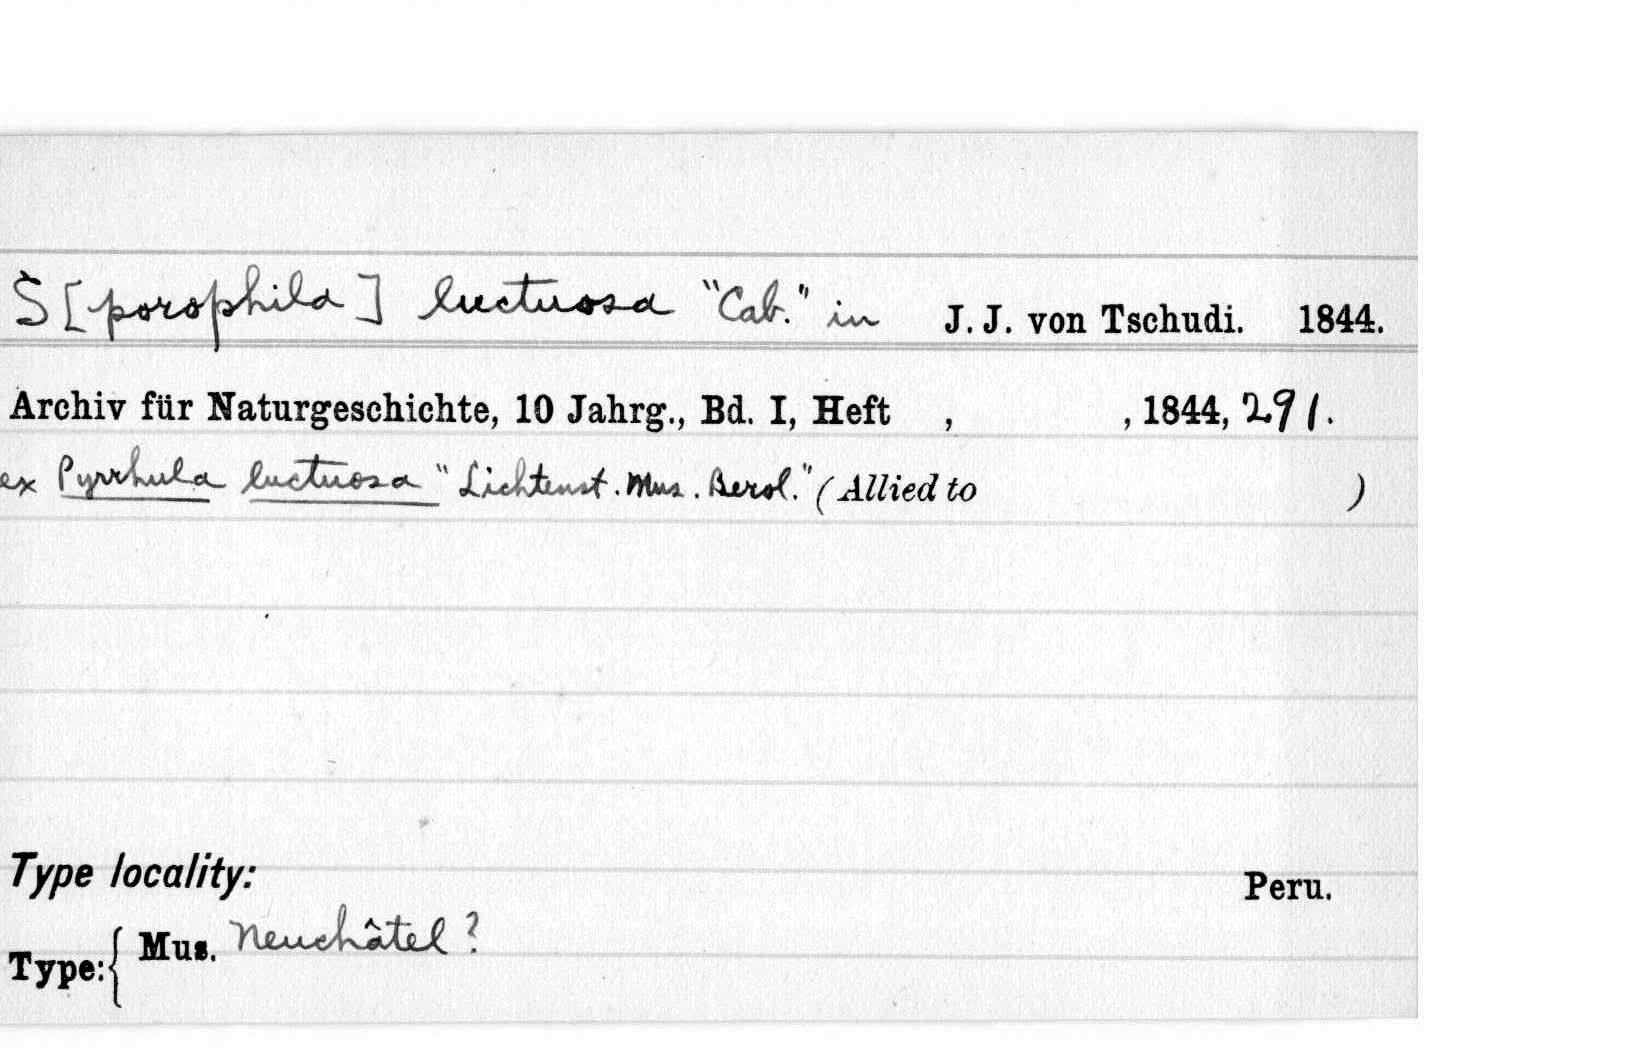 S[porophila] luctuosa "Cab." in J. J. von Tschudi. 1844.
Archiv für Naturgeschichte, 10 Jahrg., Bd. I, Heft , , 1844, 291.
ex Pyrrhula luctuosa "Lichtenst. Mus. Berol." (Allied to )
Type locality: Peru.
Type: { Mus. Neuchâtel ?